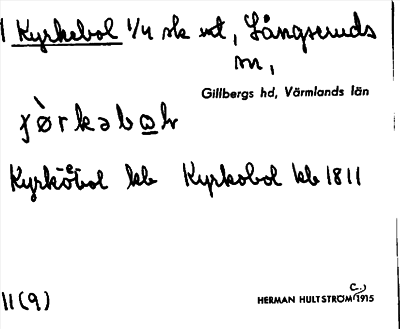 1 Kyrkebol 1/4 sk mt, Långseruds
sn,
Gillbergs hd, Värmlands län
Kyrkebol kb Kyrkobol kb 1811
11(9)
HERMAN HULTSTRÖM (C..) 1915